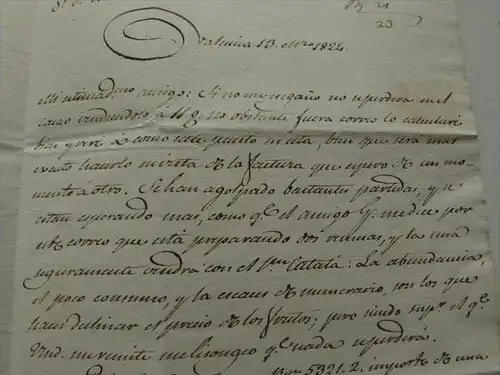 21
23
Valencia 13 Mzo 1824.
Mi estimadmo amigo: Si no me engaño no se perderá en el
cacao vendiendolo á 11 g: no obstante fuera correo lo calcularé
bien y diré á como sale puesto en esta, bien que será mas
exacto hacerlo en vista de la factura que espero de un mo-
mento á otro. Se han agolpado bastantes partidas, y se
estan esperando mas, como qe. el amigo G. me dice por
este correo que está preparando dos remesas, y la una
seguramente vendrá con el Pn. Catalá: La abundancia,
el poco consumo, y la escasez de numerario, son los que
hacen declinar el precio de los frutos; pero siendo supr. el qe.
Vmd. me remite me lisongeo qe. nada se perderá.
5321.2. importe de una